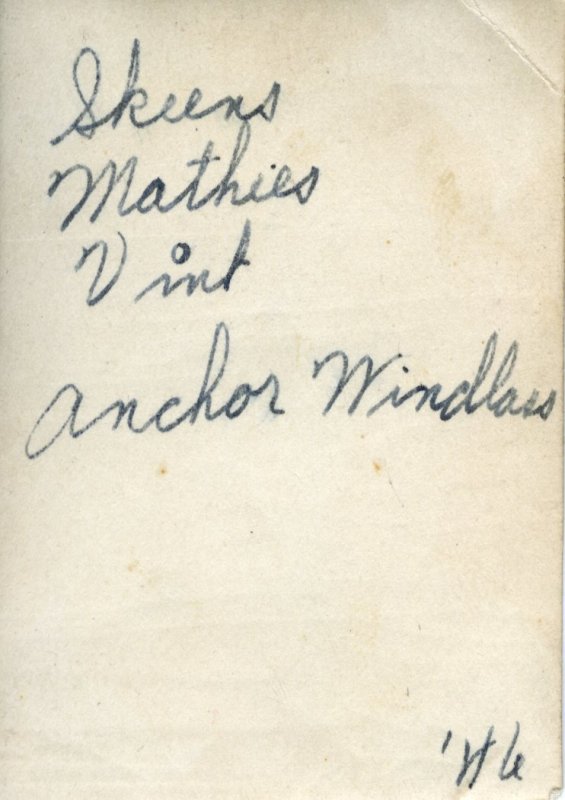 Skeens
Mathies
Vint
Anchor Windlass
'46